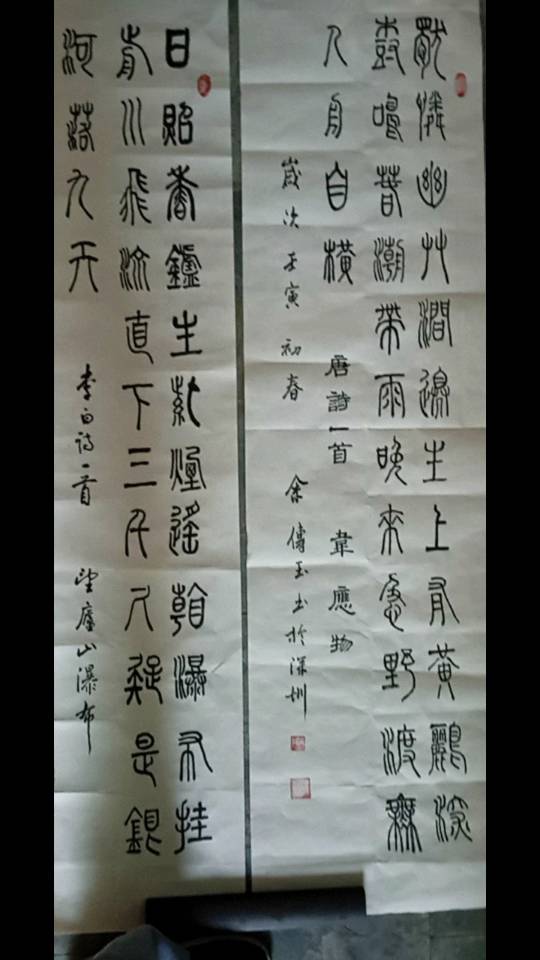 獨憐幽艸澗邊生上有黃鸝深
樹鳴春潮帶雨晚來急野渡無
人舟自橫 唐詩一首 韋應物
歲次壬寅初春 余傳玉书於深圳
日照香鑪生紫煙遙看瀑布挂
前川飛流直下三千尺疑是銀
河落九天 李白诗一首 望廬山瀑布